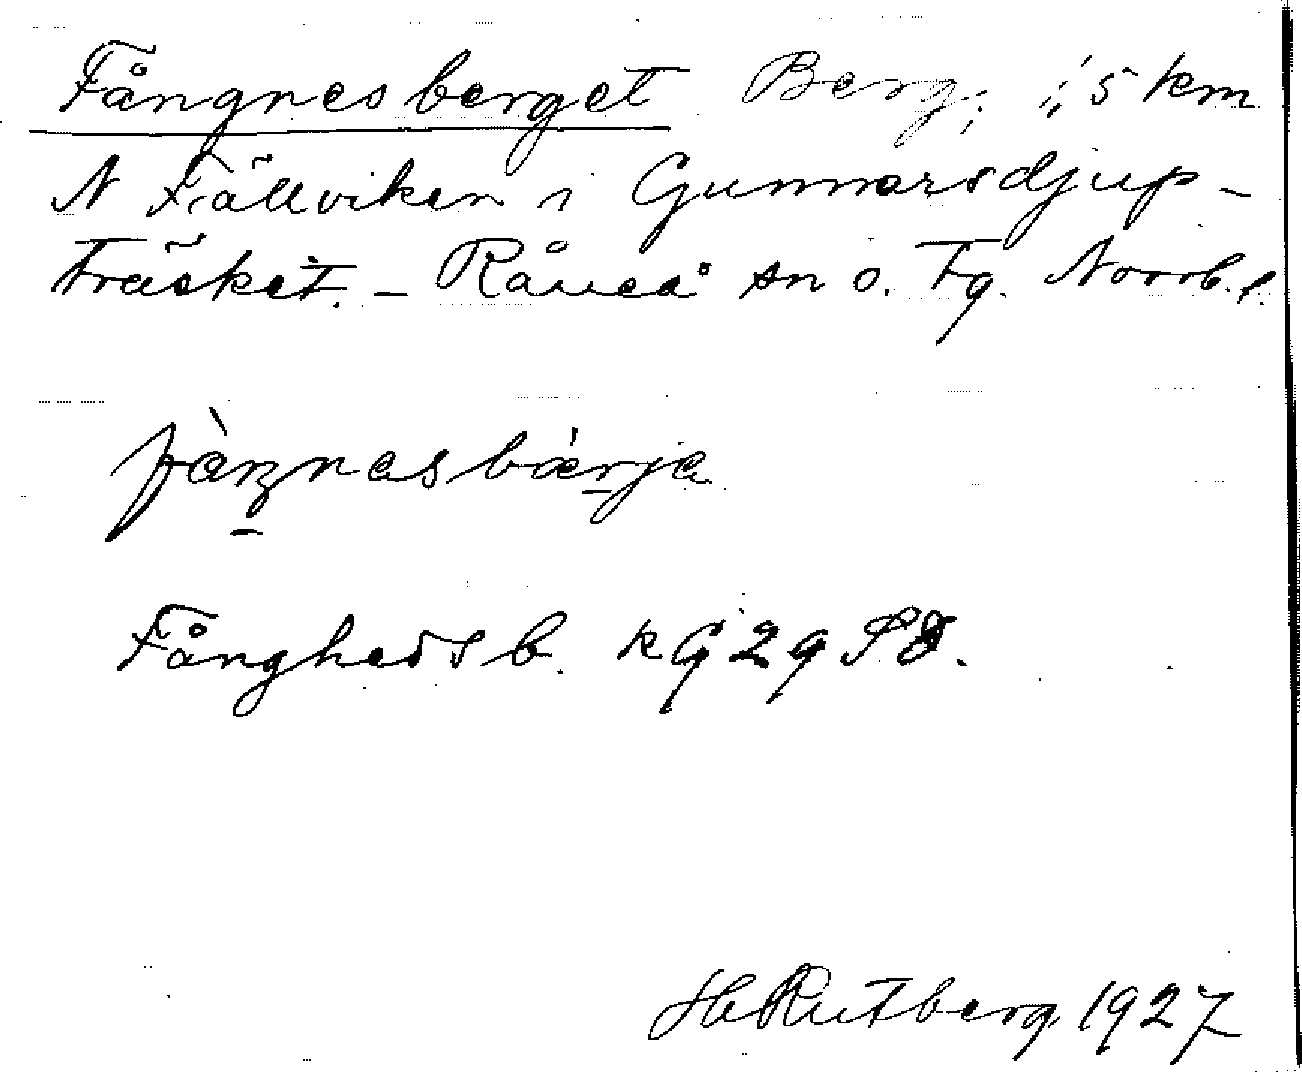 Fångnesberget Berg; 1,5 km
N Fällviken i Gunnarsdjup-
träsket. – Råneå sn o. tg. Norrb. l.
fàŋnesbǽrjə
Fånghedsb. kG29SO.
H Rutberg 1927